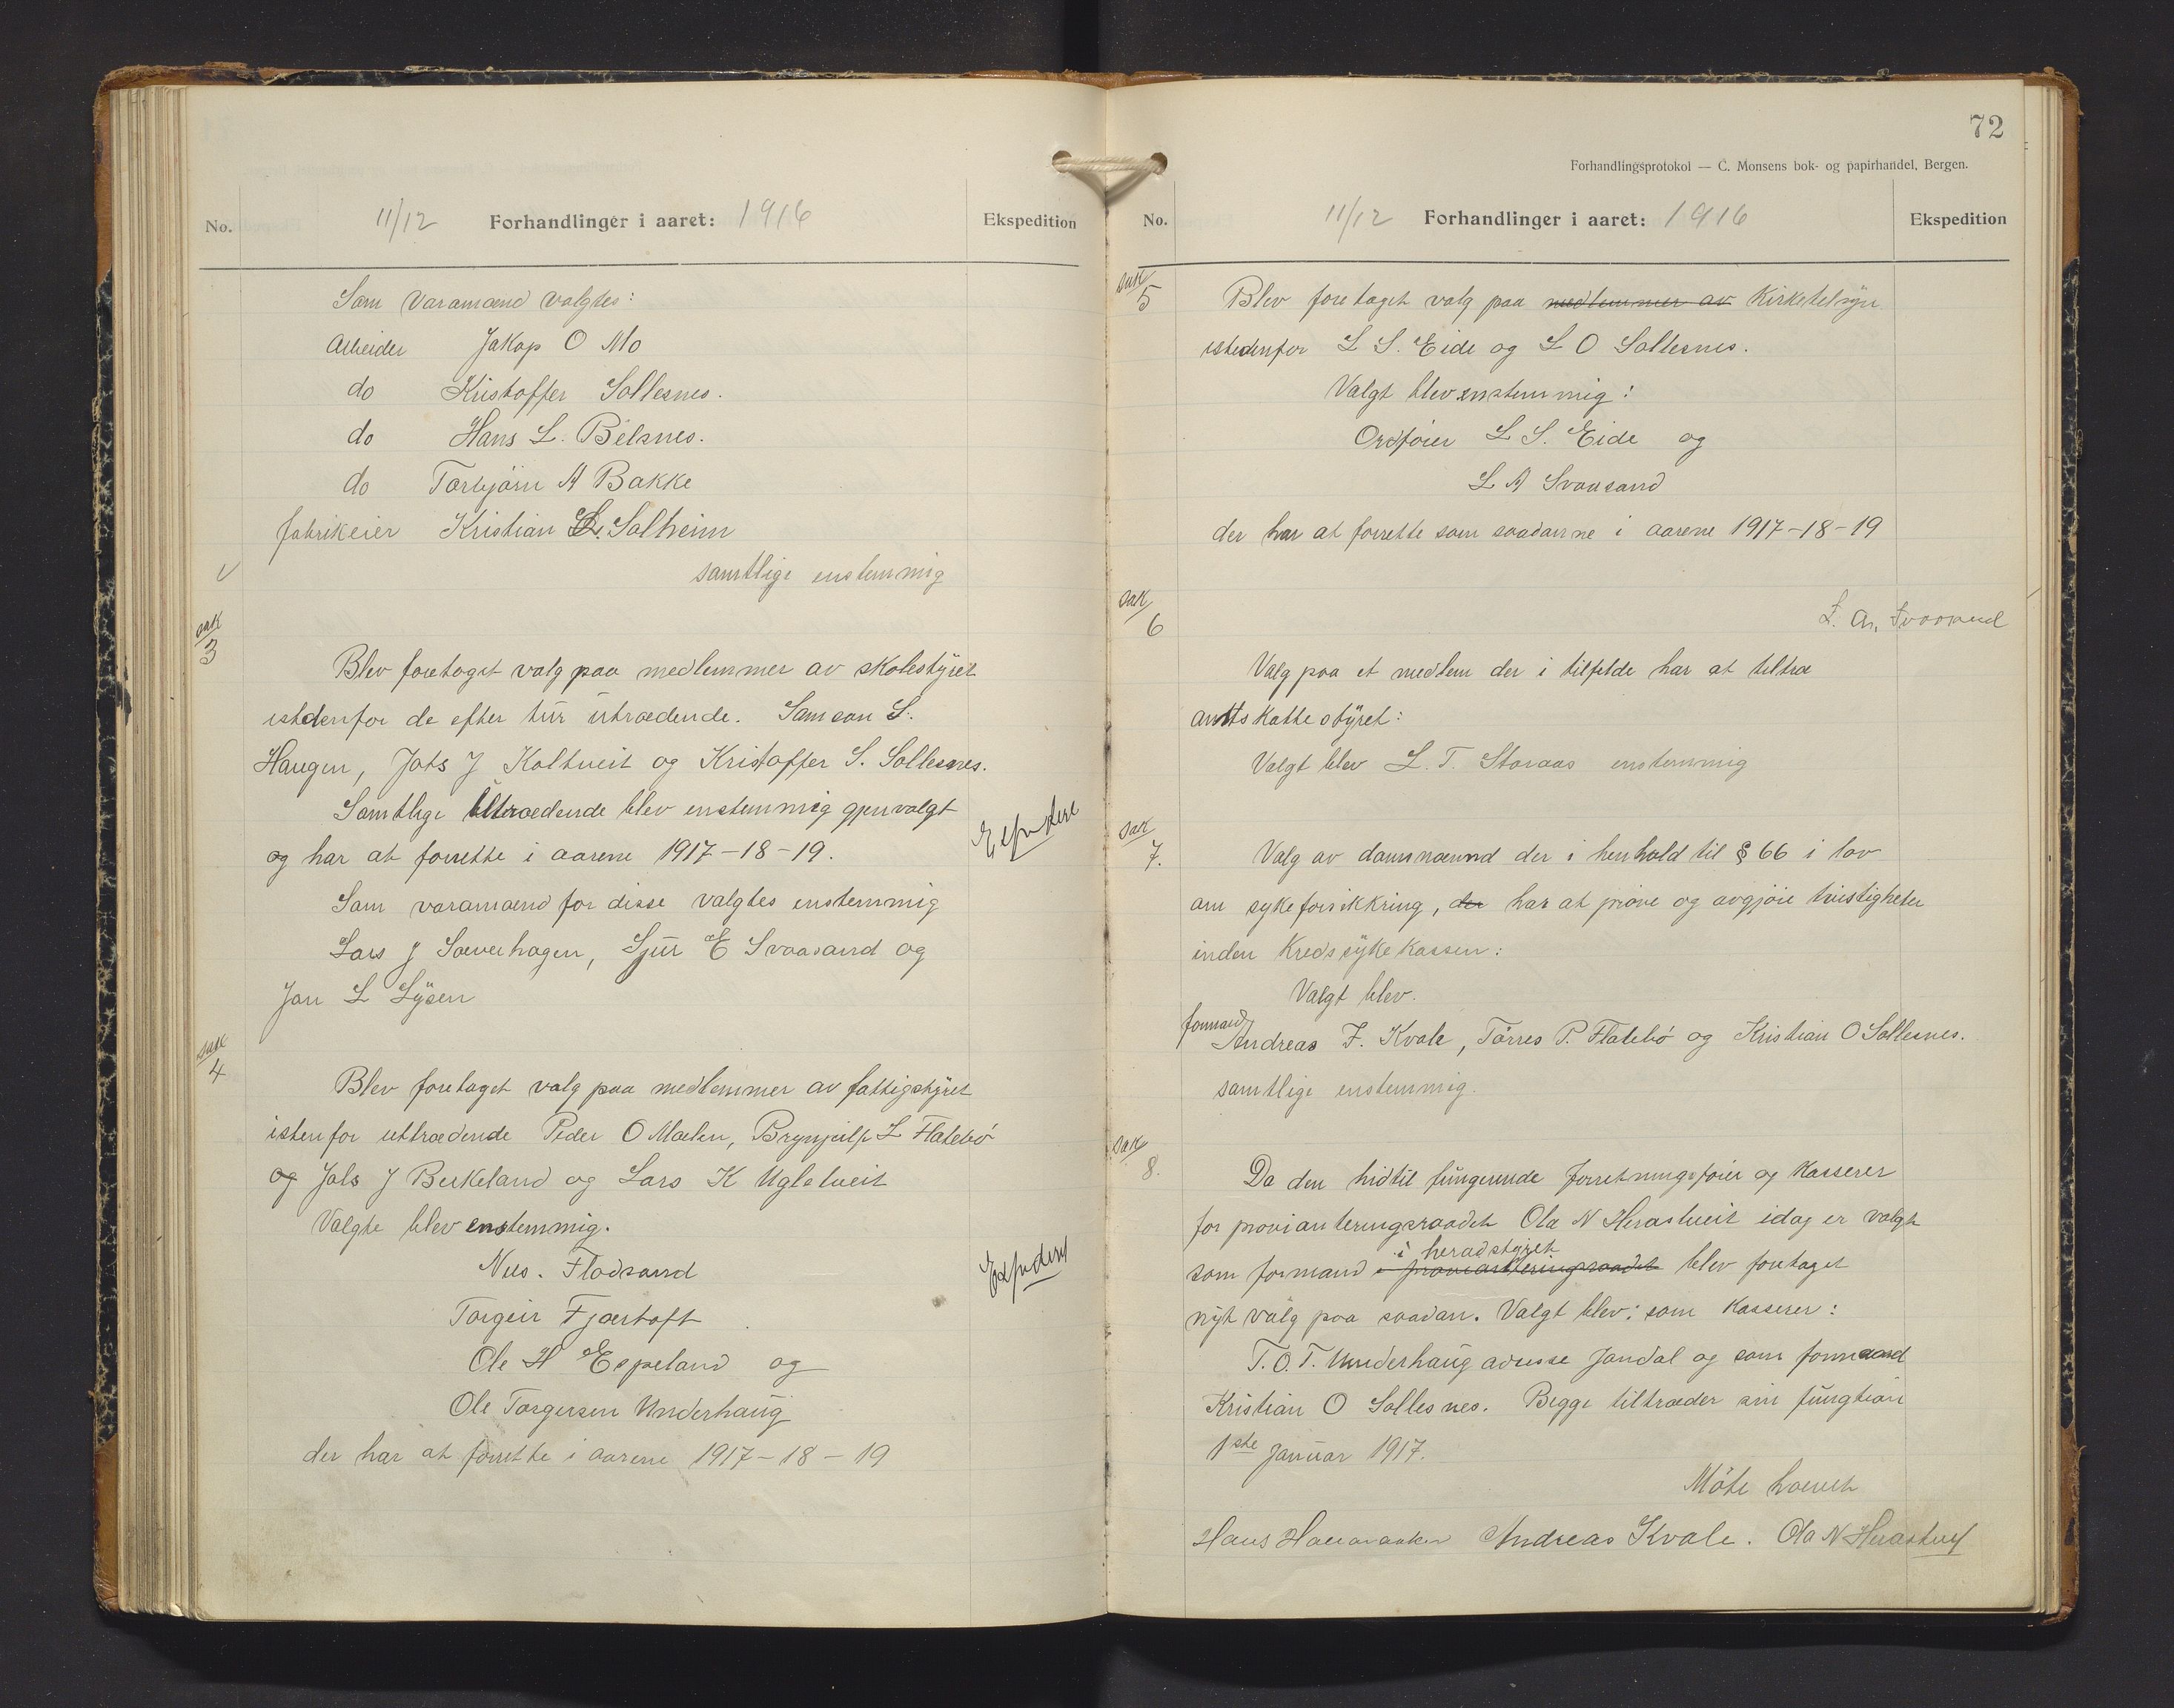 No.
11/12 Forhandlinger i aaret: 1916
Ekspedition
Som Varamænd valgtes:
Arbeider Jakop O Mo
do Kristoffer Sollesnes.
do Hans L. Belsnes.
do Torbjörn A Bakke
fabrikeier Kristian L. Solheim
samtlige enstemmig
sak 3
Blev foretaget valg paa medlemmer av skolestyret
istedenfor de efter tur utrædende. Samson S.
Haugen, Johs J Koltveit og Kristoffer S. Sollesnes.
Samtlige uttrædende blev enstemmig gjenvalgt
og har at forrette i aarene 1917-18-19.
Som varamænd for disse valgtes enstemmig
Lars J Sæverhagen, Sjur E Svaasand og
Jon L Lysen
sak 4
Blev foretaget valg paa medlemmer av fattigstyret
istenfor uttrædende Peder O Mælen, Brynjulf L Flatebö
og Johs J Berkeland og Lars K Ugletveit
Valgte blev enstemmig.
Nils. Flodsand
Torgeir Fjærtoft
Ole H Espeland og
Ole Torgersen Underhaug
der har at forrette i aarene 1917-18-19
72
Forhandlingsprotokol — C. Monsens bok- og papirhandel, Bergen.
No.
11/12 Forhandlinger i aaret: 1916
Ekspedition
sak 5
Blev foretaget valg paa medlemmer av Kirketilsyn
istedenfor L S. Eide og L O Sollesnes.
Valgt blev enstemmig:
Ordförer L S. Eide og
L A Svaasand
der har at forrette som saadanne i aarene 1917-18-19
L. A. Svaasand
sak 6
Valg paa et medlem der i tilfelde har at tiltræ
amtskattestyret:
Valgt blev L. T. Staraas enstemmig
sak 7.
Valg av domsnævnd der i henhold til § 66 i lov
om sykeforsikkring, der har at pröve og avgjöre tvistigheter
inden Kredssykekassen:
Valgt blev.
formand
Andreas J. Kvale, Törres P. Flatebö og Kristian O Sollesnes.
samtlige enstemmig.
sak 8.
Da den hidtil fungerende forretningsförer og Kasserer
for provianteringsraadet Ola N Herastveit idag er valgt
i heradstyret
som formand i provianteringsraadet blev foretaget
nyt valg paa saadan. Valgt blev: som Kasserer:
T. O. T. Underhaug adresse Jondal og som formand
Kristian O Sollesnes. Begge tiltræder sin fungtion
1ste Januar 1917.
Möte hævet
Andreas Kvale. Ola N Herastveit